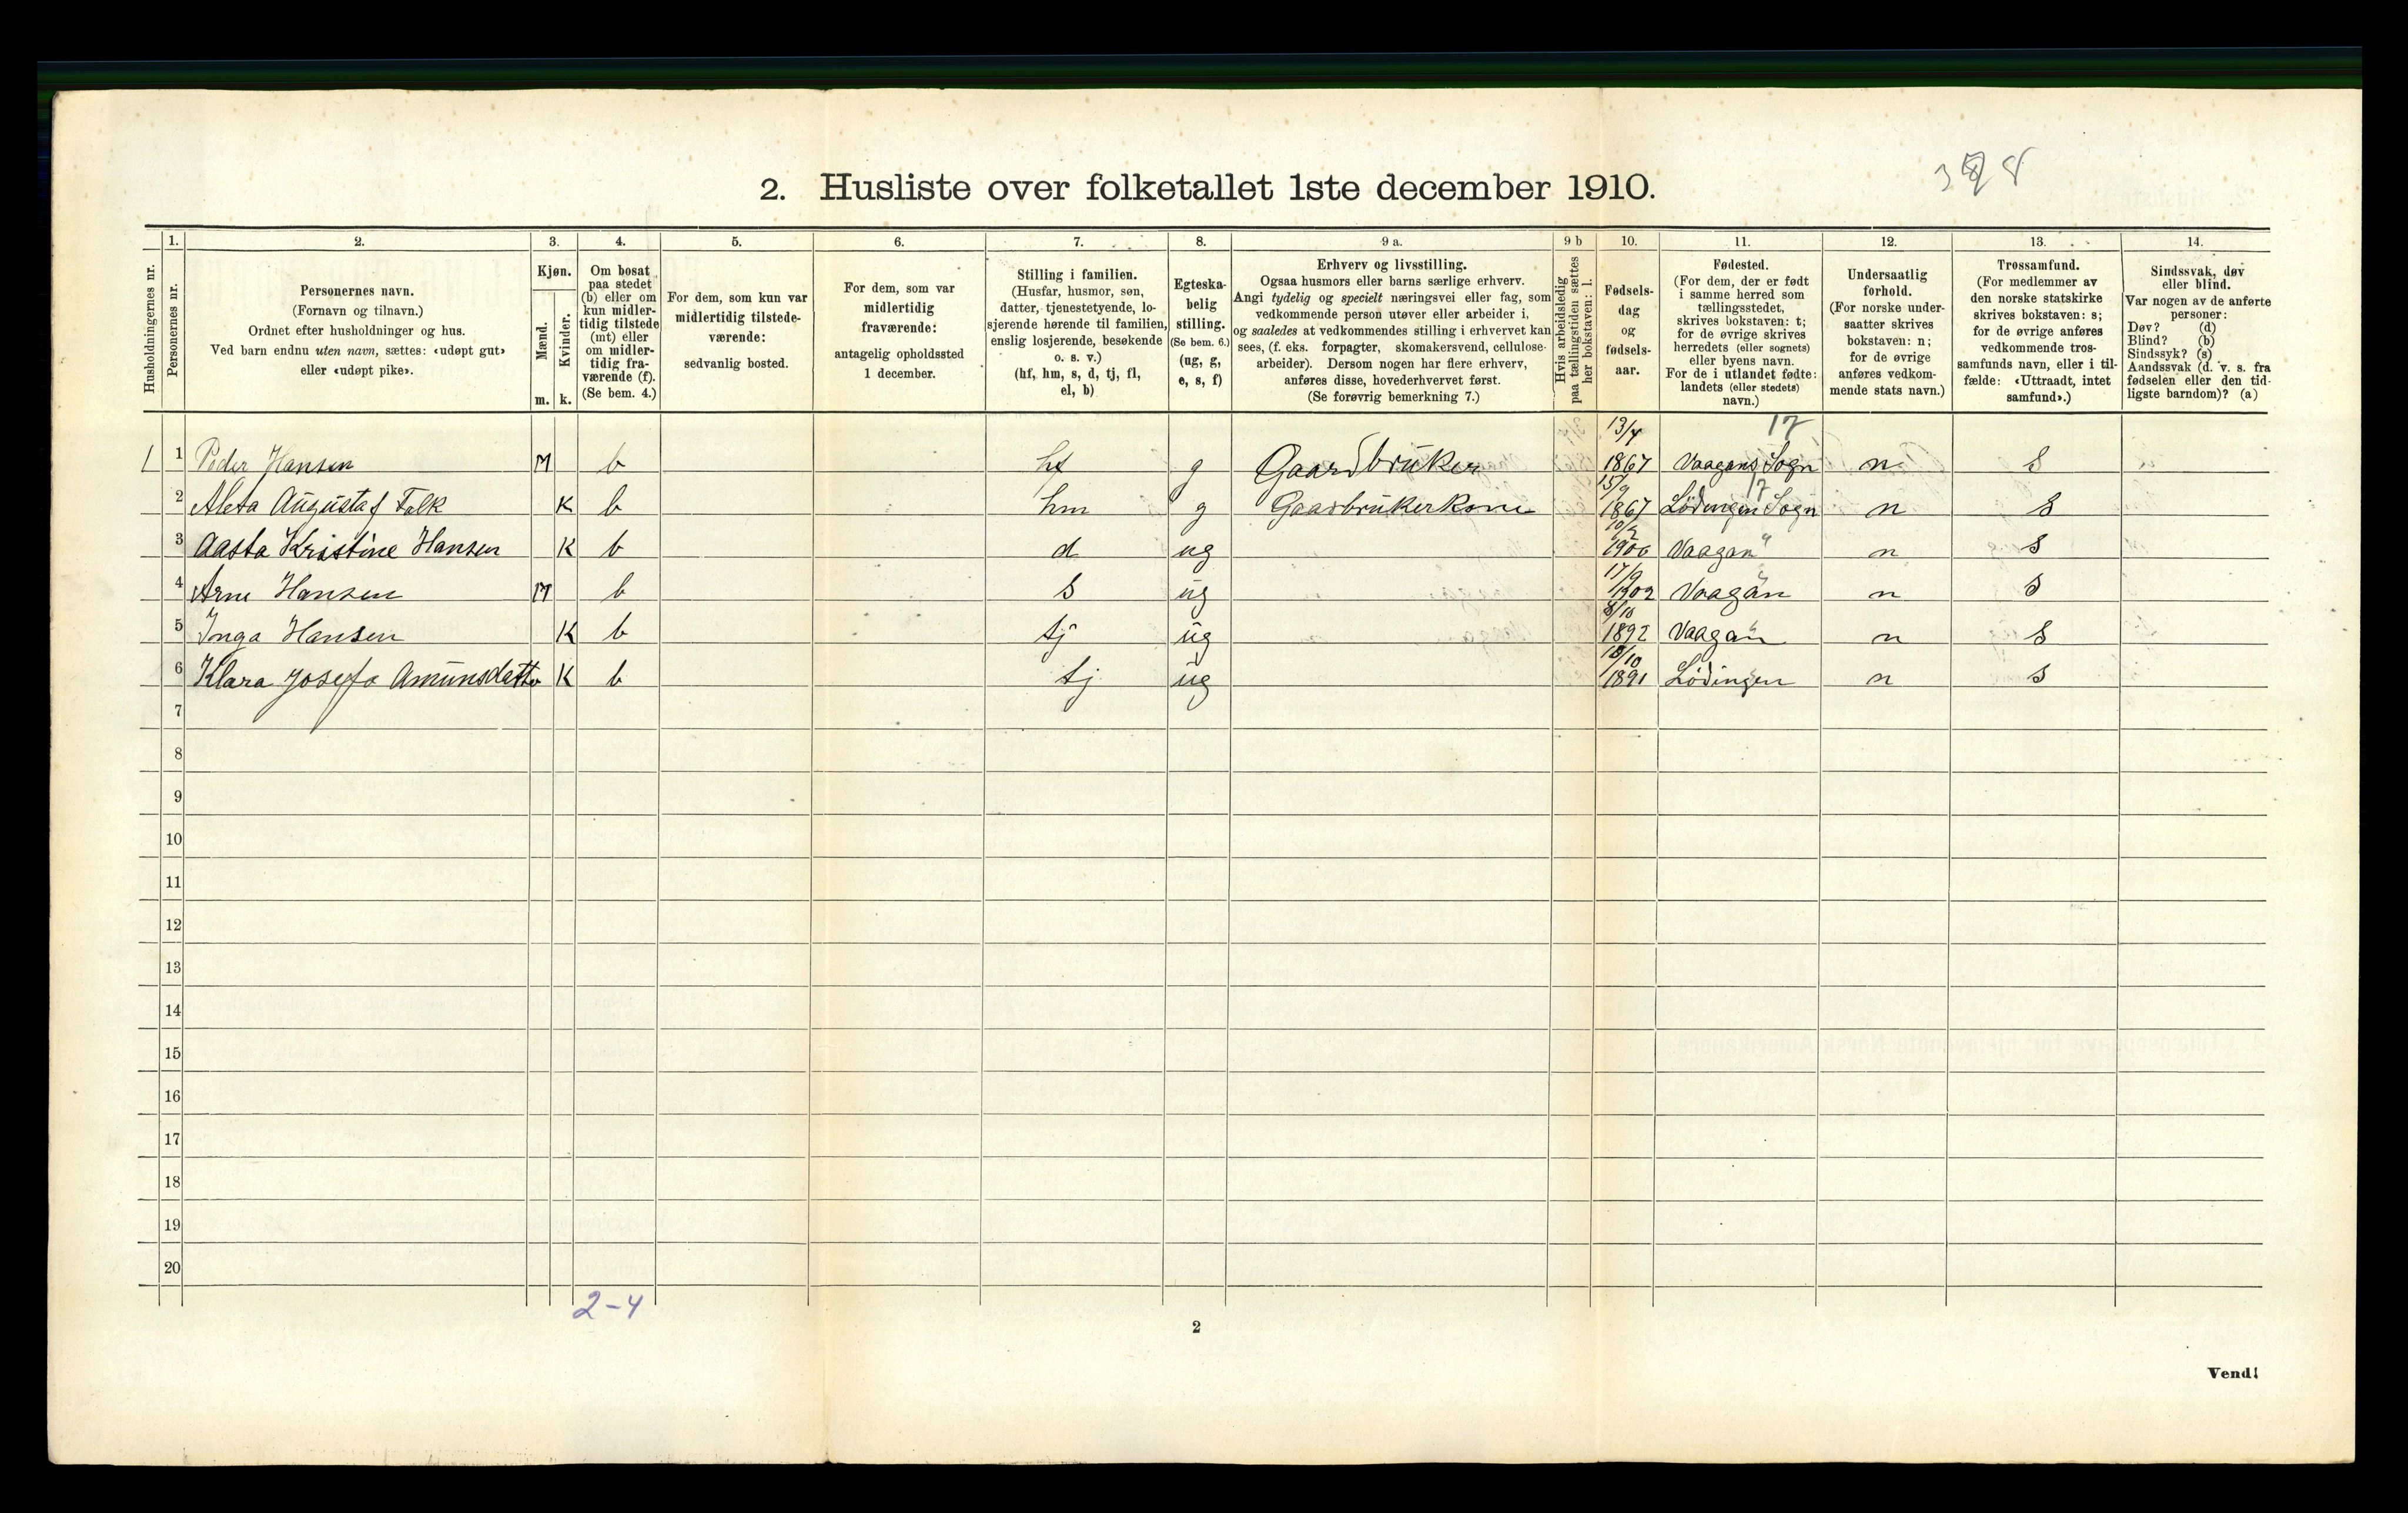 2. Husliste over folketallet 1ste december 1910.
1. 2. 3. 4. 5. 6. 7. 8. 9 a. 9 b 10. 11. 12. 13. 14.
Husholdningernes nr.
Personernes nr.
Personernes navn.
(Fornavn og tilnavn.)
Ordnet efter husholdninger og hus.
Ved barn endnu uten navn, sættes: «udøpt gut»
eller «udøpt pike».
Kjøn.
Mænd.
Kvinder.
m. k.
Om bosat
paa stedet
(b) eller om
kun midler-
tidig tilstede
(mt) eller
om midler-
tidig fra-
værende (f).
(Se bem. 4.)
For dem, som kun var
midlertidig tilstede-
værende:
sedvanlig bosted.
For dem, som var
midlertidig
fraværende:
antagelig opholdssted
1 december.
Stilling i familien.
(Husfar, husmor, søn,
datter, tjenestetyende, lo-
sjerende hørende til familien,
enslig losjerende, besøkende
o. s. v.)
(hf, hm, s, d, tj, fl,
el, b)
Egteska-
belig
stilling.
(Se bem. 6.)
(ug, g,
e, s, f)
Erhverv og livsstilling.
Ogsaa husmors eller barns særlige erhverv.
Angi tydelig og specielt næringsvei eller fag, som
vedkommende person utøver eller arbeider i,
og saaledes at vedkommendes stilling i erhvervet kan
sees, (f. eks. forpagter, skomakersvend, cellulose-
arbeider). Dersom nogen har flere erhverv,
anføres disse, hovederhvervet først.
(Se forøvrig bemerkning 7.)
Hvis arbeidsledig
paa tællingstiden sættes
her bokstaven: l.
Fødsels-
dag
og
fødsels-
aar.
Fødested.
(For dem, der er født
i samme herred som
tællingsstedet,
skrives bokstaven: t;
for de øvrige skrives
herredets (eller sognets)
eller byens navn.
For de i utlandet fødte:
landets (eller stedets)
navn.)
Undersaatlig
forhold.
(For norske under-
saatter skrives
bokstaven: n;
for de øvrige
anføres vedkom-
mende stats navn.)
Trossamfund.
(For medlemmer av
den norske statskirke
skrives bokstaven: s;
for de øvrige anføres
vedkommende tros-
samfunds navn, eller i til-
fælde: «Uttraadt, intet
samfund».)
Sindssvak, døv
eller blind.
Var nogen av de anførte
personer:
Døv? (d)
Blind? (b)
Sindssyk? (s)
Aandssvak (d. v. s. fra
fødselen eller den tid-
ligste barndom)? (a)
13/4 17
1 1 Peder Hansen M b hf g Gaardbruker 1867 Vaagans Sogn n s
15/9 17
2 Aleta Augusta f Falk K b hm g Gaarbrukerkone 1867 Lødingen Sogn n s
10/2
3 Aasta Kristine Hansen K b d ug 1900 Vaagan n s
17/9
4 Arne Hansen M b s ug 1902 Vaagan n s
8/10
5 Inga Hansen K b tj ug 1892 Vaagan n s
10/10
6 Klara Josefa Amunsdatter K b tj ug 1891 Lødingen n s
7
8
9
10
11
12
13
14
15
16
17
18
19
20
2-4
2
Vend!